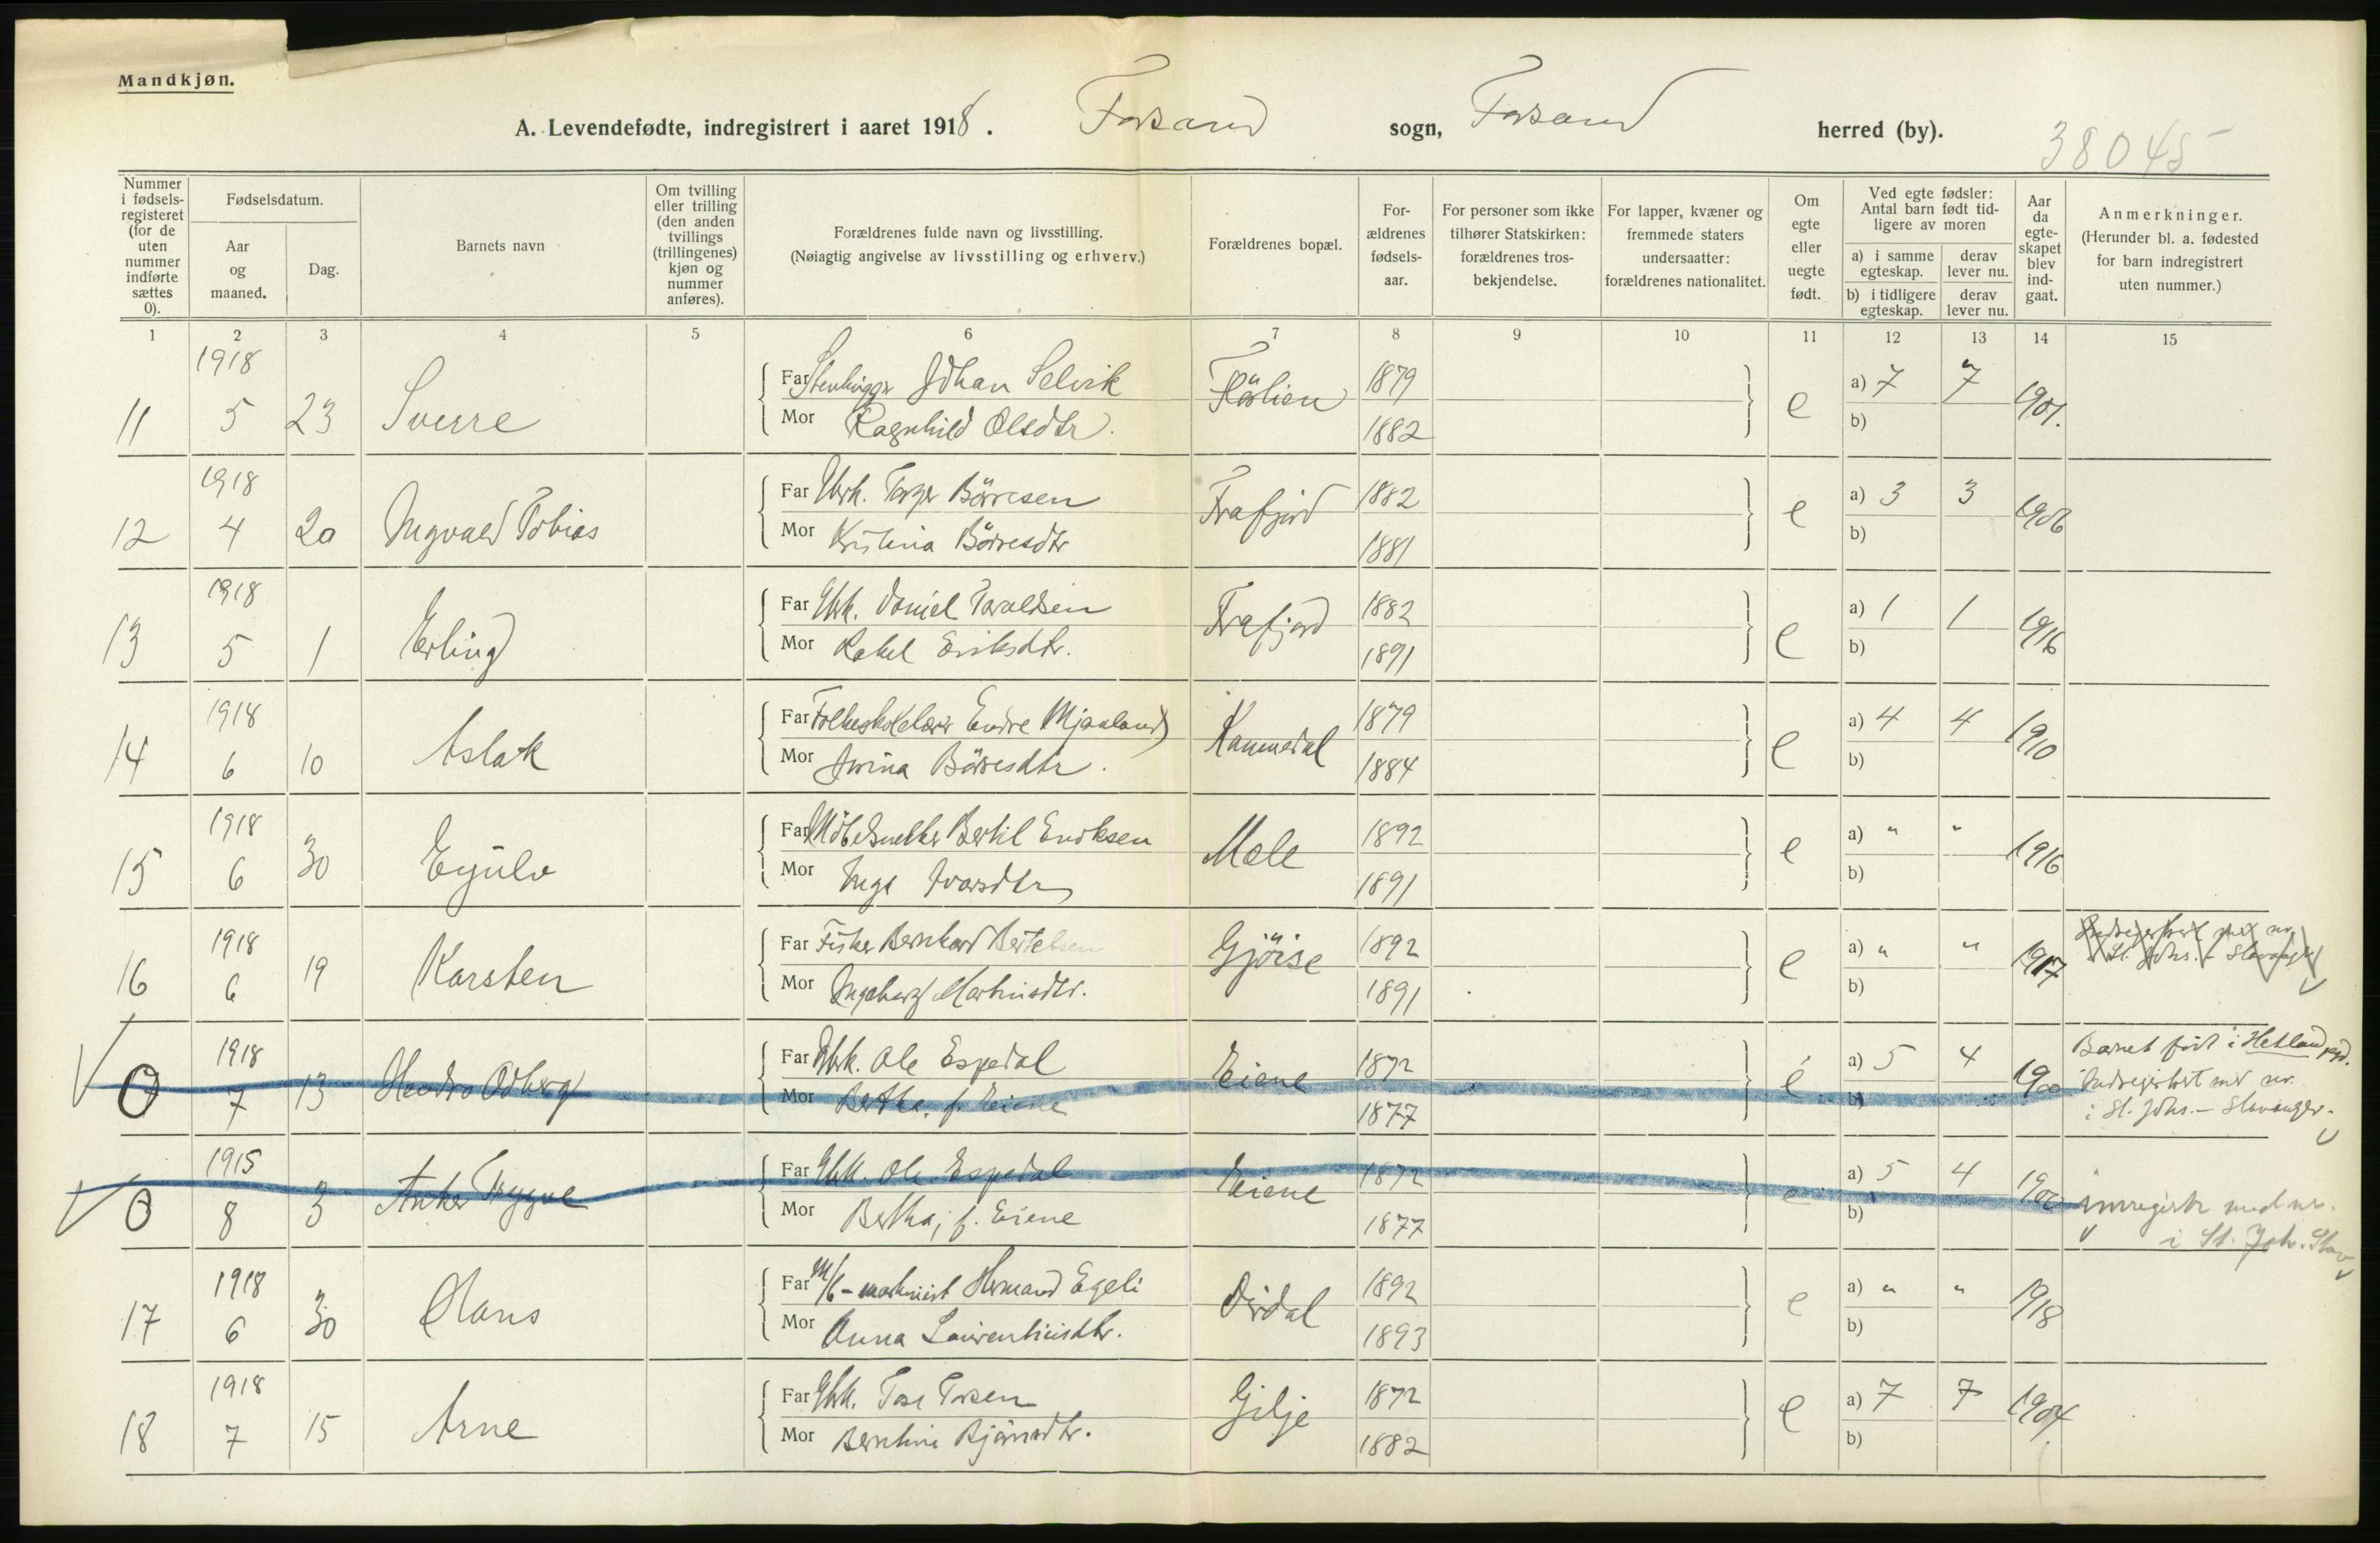 Mandkjøn.
A. Levendefødte, indregistrert i aaret 1918. Forsand sogn, Forsand herred (by).
38045
Nummer i fødselsregisteret (for de uten nummer indførte sættes 0).
Fødselsdatum.
Aar og maaned.
Dag.
Barnets navn
Om tvilling eller trilling (den anden tvillings (trillingenes) kjøn og nummer anføres).
Forældrenes fulde navn og livsstilling.
(Nøiagtig angivelse av livsstilling og erhverv.)
Forældrenes bopæl.
Forældrenes fødselsaar.
For personer som ikke tilhører Statskirken: forældrenes trosbekjendelse.
For lapper, kvæner og fremmede staters undersaatter: forældrenes nationalitet.
Om egte eller uegte født.
Ved egte fødsler: Antal barn født tidligere av moren
a) i samme egteskap. derav lever nu.
b) i tidligere egteskap. derav lever nu.
Aar da egteskapet blev indgaat.
Anmerkninger.
(Herunder bl. a. fødested for barn indregistrert uten nummer.)
1 2 3 4 5 6 7 8 9 10 11 12 13 14 15
1918
11 5 23 Sverre Far Stenhugger Johan Selvik 1879 e a) 7 7 1901.
Mor Ragnhild Olsdtr. 1882 b)
1918
12 4 20 Ingvald Tobias Far Gbrk. Torger Börresen Frafjord 1882 e a) 3 3 1906
Mor Kristina Börresdtr 1881 b)
1918
13 5 1 Erling Far Gbrk. Daniel Taraldsen Frafjord 1882 e a) 1 1 1916
Mor Rakel Eriksdtr. 1891 b)
1918
14 6 10 Aslak Far Folkeskolelærer Endre Mjaaland 1879 e a) 4 4 1910
Mor Börresdtr. 1884 b)
1918
15 6 30 Eyulv Far Möbelsnekker Bertil Eriksen Mæle 1892 e a) " " 1916
Mor Inga Ivarsdtr 1891 b)
1918
16 6 19 Karsten Far Fisker Bernhard Bertelsen Gjöise 1892 e a) " " 1917 Indregistrert med nr. i St. Johs. - Stavanger
Mor Ingeborg Martinsdtr. 1891 b)
1918
0 7 13 Odberg Far Gbrk. Ole Espedal Eiene 1872 e a) 5 4 1900 Barnet født i Hetland pgd.
Mor Bertha, f. Eiene 1877 b) Indregistrert med nr.
i St. Johs. - Stavanger.
1915
0 8 3 Anker Trygve Far Gbrk. Ole Espedal Eiene 1872 e a) 5 4 1900 innregistr med nr.
Mor Bertha, f. Eiene 1877 b) i St. Joh. Stav
1918
17 6 30 Hans Far M/k-maskinist Herman Egeli Dirdal 1892 e a) " " 1918
Mor Anna Laurentiusdtr. 1893 b)
1918
18 7 15 Arne Far Gbrk. Tore Torsen Gilje 1872 e a) 7 7 1904
Mor Berntine Bjørnsdtr. 1882 b)